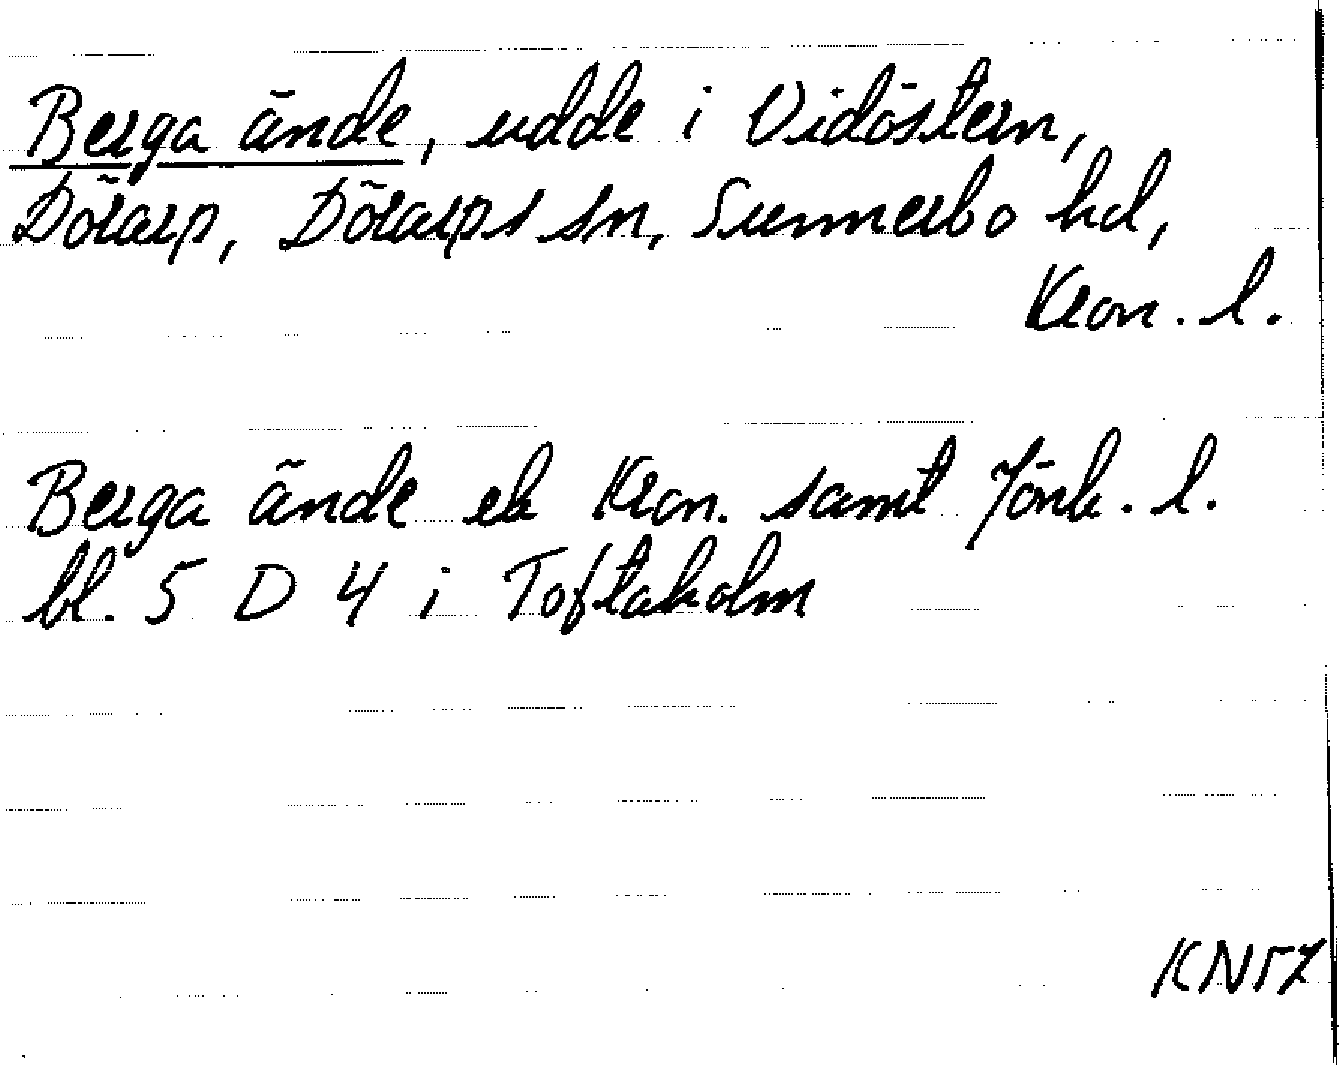 Berga ände, udde i Vidöstern,
Dörarp, Dörarps sn, Sunnerbo hd,
Kron. l.
Berga ände ek Kron. samt Jönk. l.
bl. 5 D 4 i Toftaholm